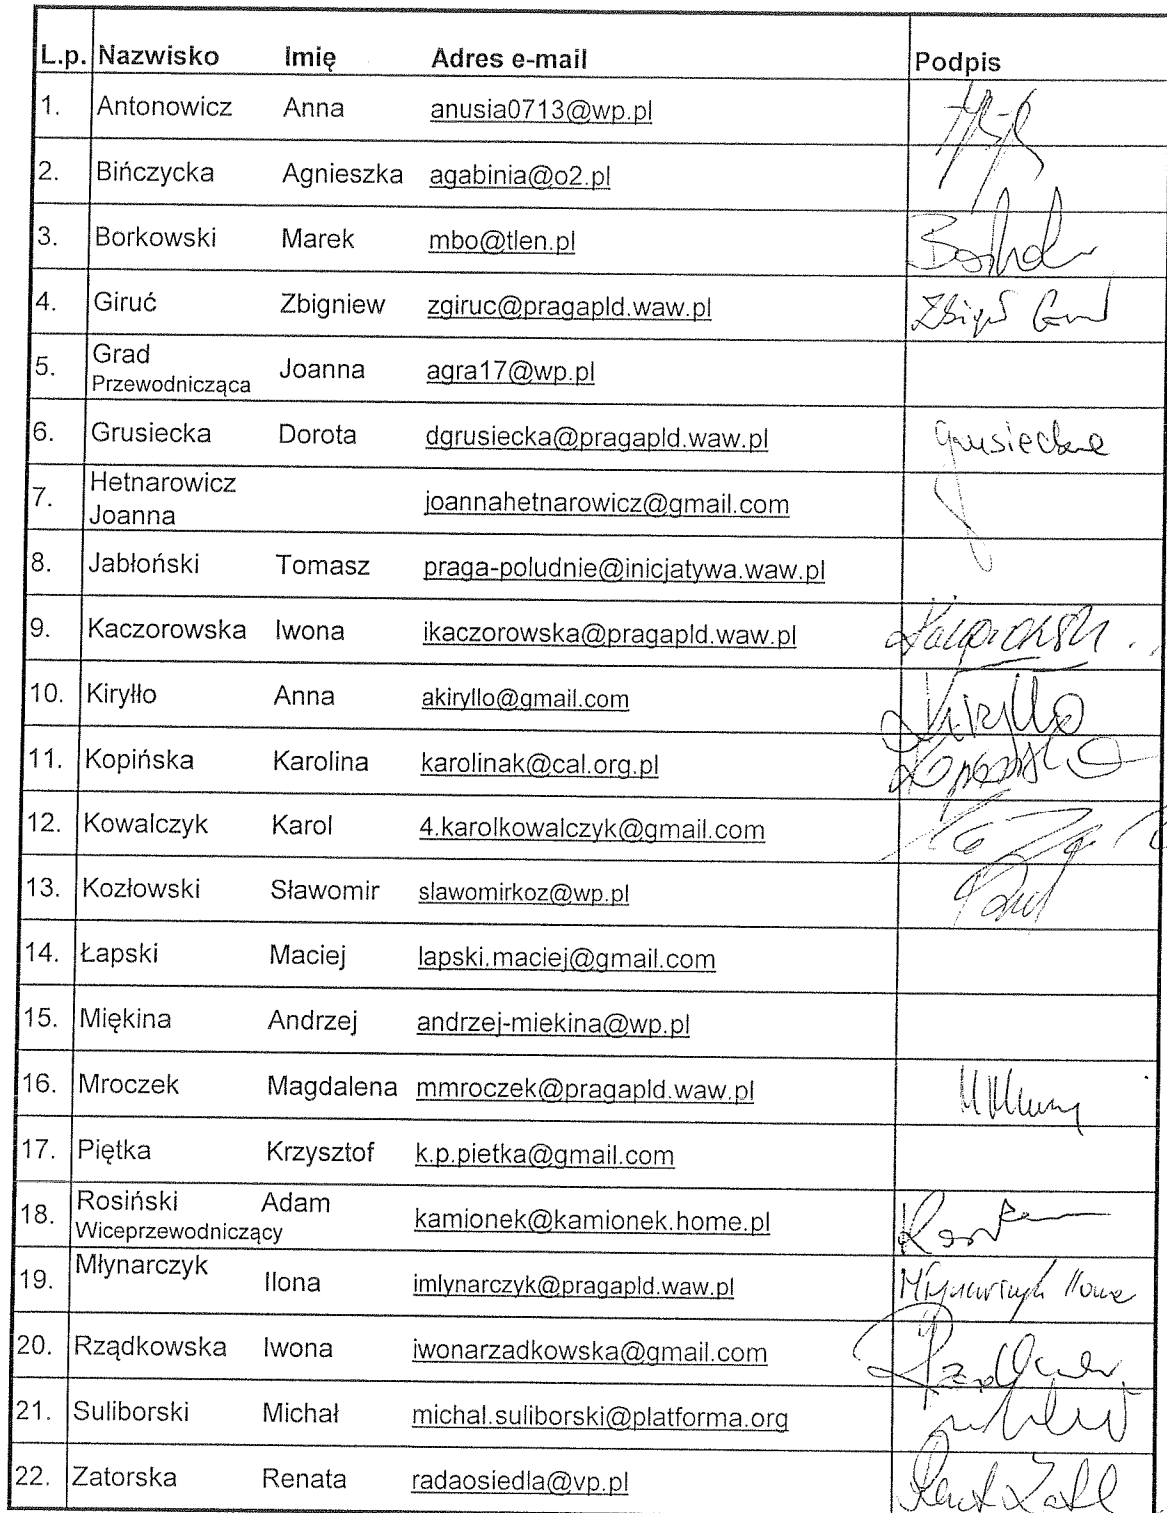 L.p. Nazwisko Imię Adres e-mail Podpis
1. Antonowicz Anna anusia0713@wp.pl
2. Bińczycka Agnieszka agabinia@o2.pl
3. Borkowski Marek mbo@tlen.pl
4. Giruć Zbigniew zgiruc@pragapld.waw.pl
5. Grad Joanna agra17@wp.pl
Przewodnicząca
6. Grusiecka Dorota dgrusiecka@pragapld.waw.pl Grusiecka
7. Hetnarowicz joannahetnarowicz@gmail.com
Joanna
8. Jabłoński Tomasz praga-poludnie@inicjatywa.waw.pl
9. Kaczorowska Iwona ikaczorowska@pragapld.waw.pl
10. Kiryłło Anna akiryllo@gmail.com Kiryllo
11. Kopińska Karolina karolinak@cal.org.pl
12. Kowalczyk Karol 4.karolkowalczyk@gmail.com
13. Kozłowski Sławomir slawomirkoz@wp.pl
14. Łapski Maciej lapski.maciej@gmail.com
15. Miękina Andrzej andrzej-miekina@wp.pl
16. Mroczek Magdalena mmroczek@pragapld.waw.pl
17. Piętka Krzysztof k.p.pietka@gmail.com
18. Rosiński Adam kamionek@kamionek.home.pl
Wiceprzewodniczący
19. Młynarczyk Ilona imlynarczyk@pragapld.waw.pl Młynarczyk Ilona
20. Rządkowska Iwona iwonarzadkowska@gmail.com
21. Suliborski Michał michal.suliborski@platforma.org
22. Zatorska Renata radaosiedla@vp.pl